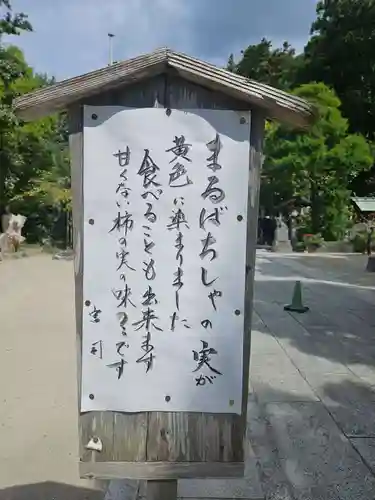 まるばちしゃの実が
黄色に染まりました
食べることも出来ます
甘くない柿の実の味うです
宮司